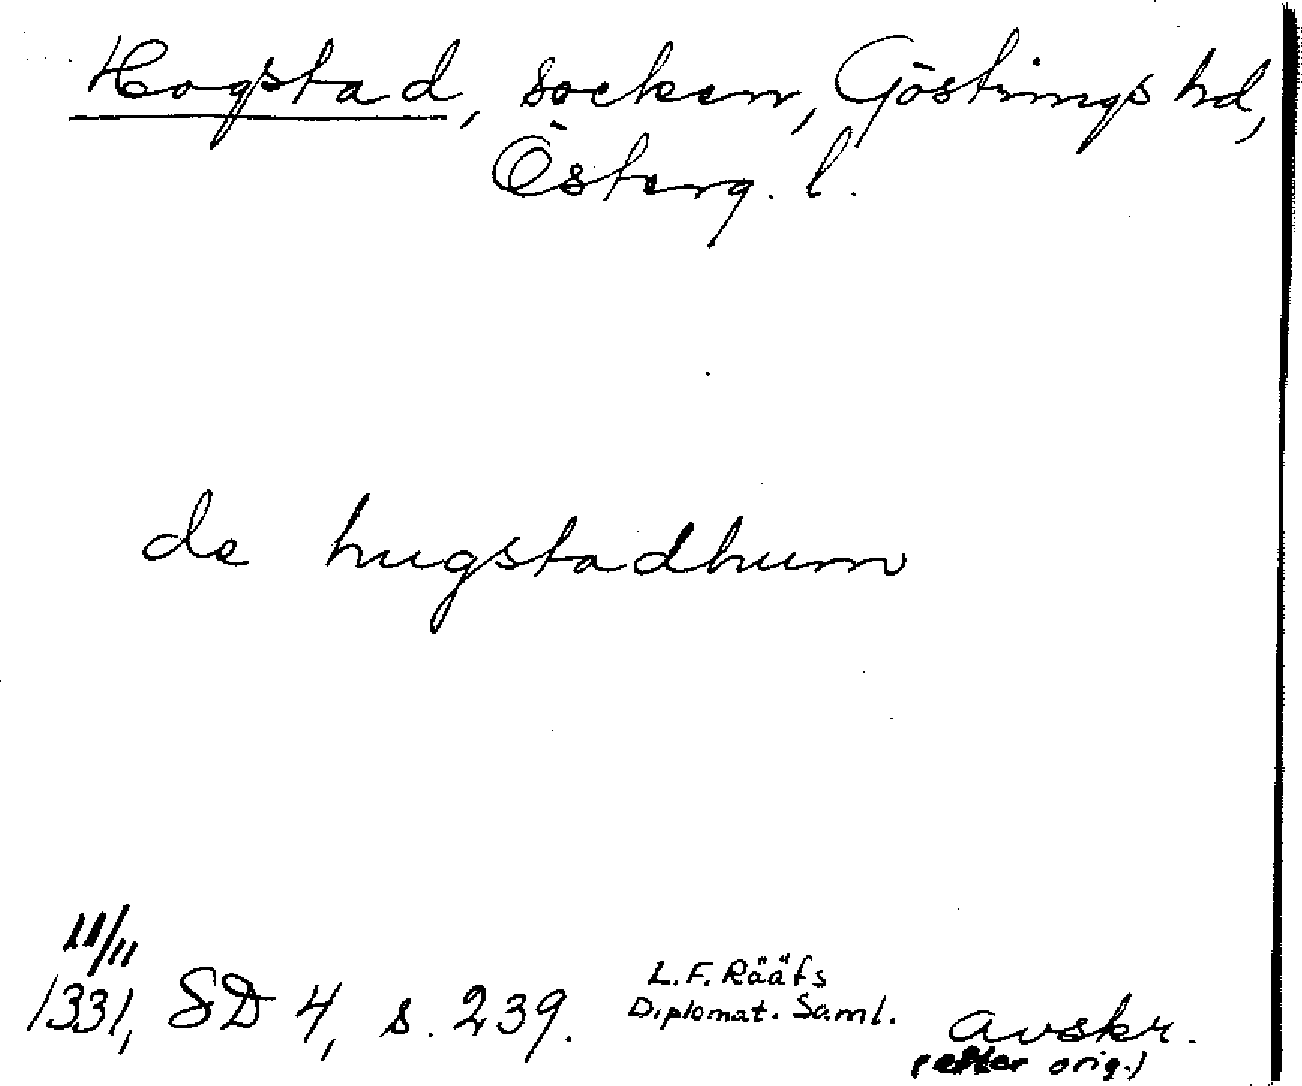 Hogstad, socken, Göstrings hd,
Österg. l.
de hugstadhum
11/11
1331, SD 4, s. 239.
L. F. Rääfs
Diplomat. Saml.
avskr.
(efter orig.)